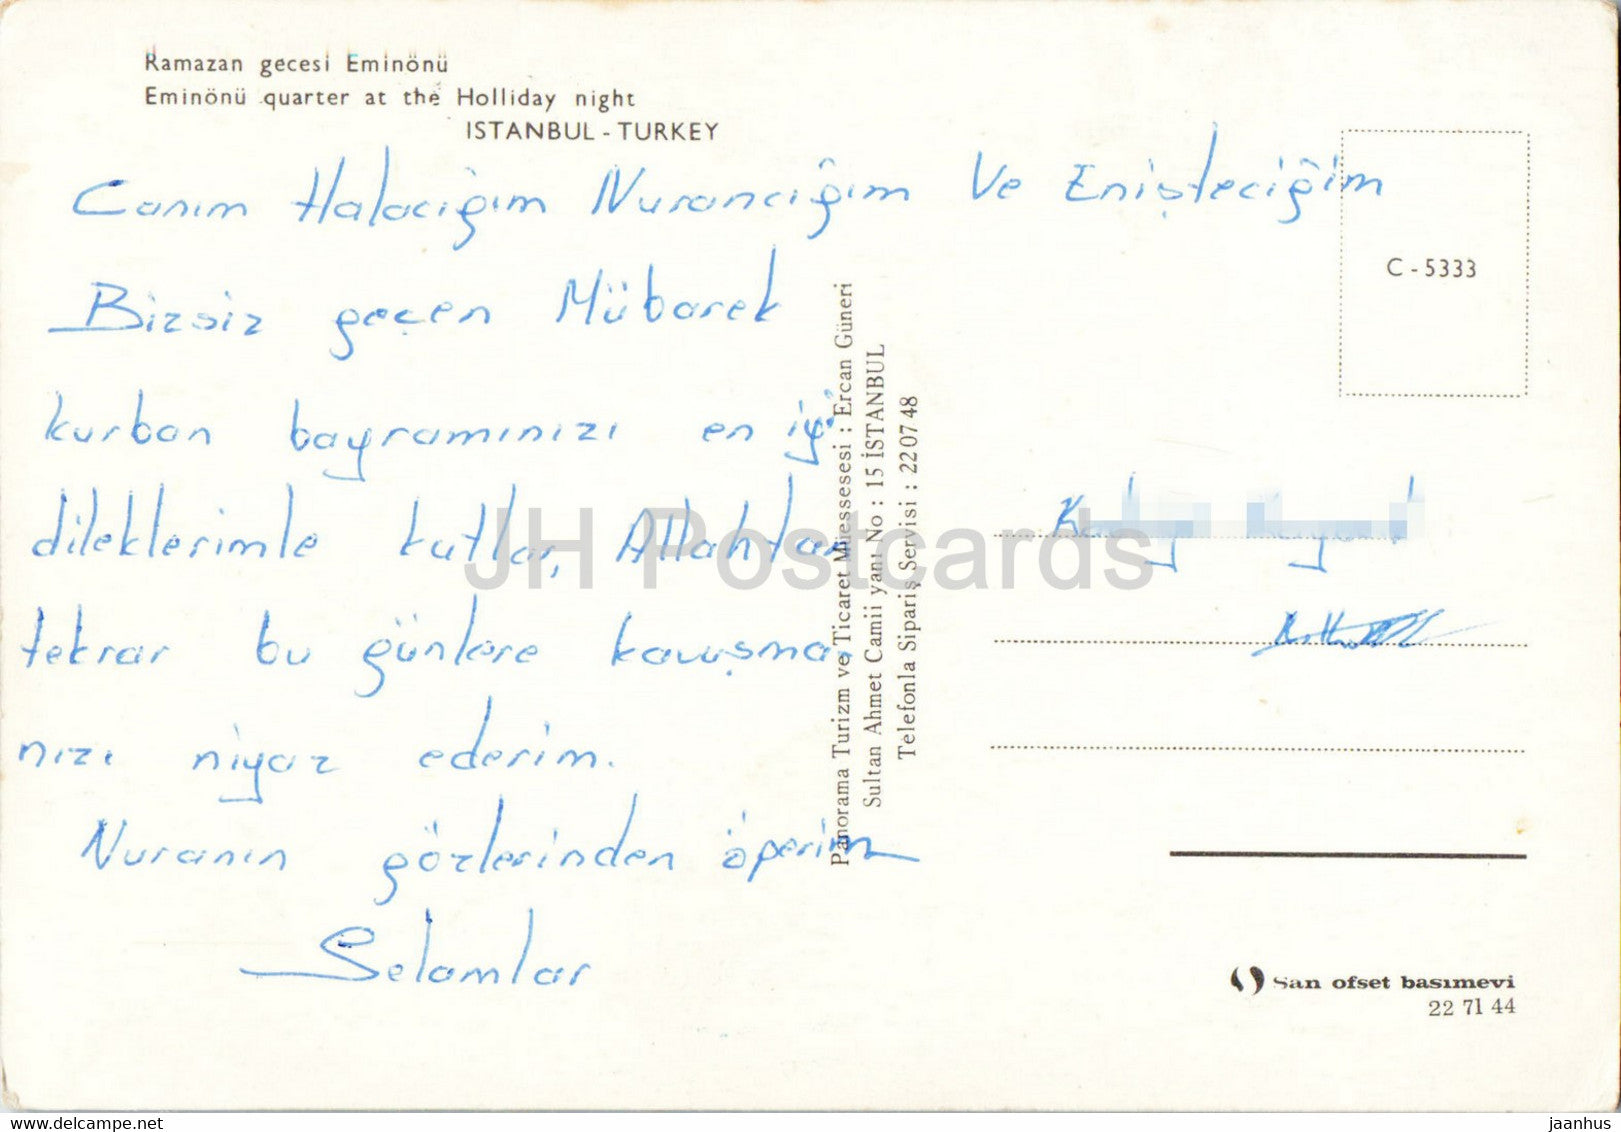 Ramazan gecesi Eminönü
Eminönü quarter at the Holliday night
ISTANBUL - TURKEY
Canım Halacığım Nurancığım Ve Enişteciğim
Bizsiz geçen Mübarek
kurban bayramınızı en iyi
dileklerimle kutlar, Allahtan
tekrar bu günlere kavuşma
nızı niyaz ederim.
Nuranın gözlerinden öperim
Selamlar
Panorama Turizm ve Ticaret Müessesesi : Ercan Güneri
Sultan Ahmet Camii yanı No : 15 İSTANBUL
Telefonla Sipariş Servisi : 22 07 48
C - 5333
San ofset basımevi
22 71 44
JH Postcards
delcampe.net
jaanhus